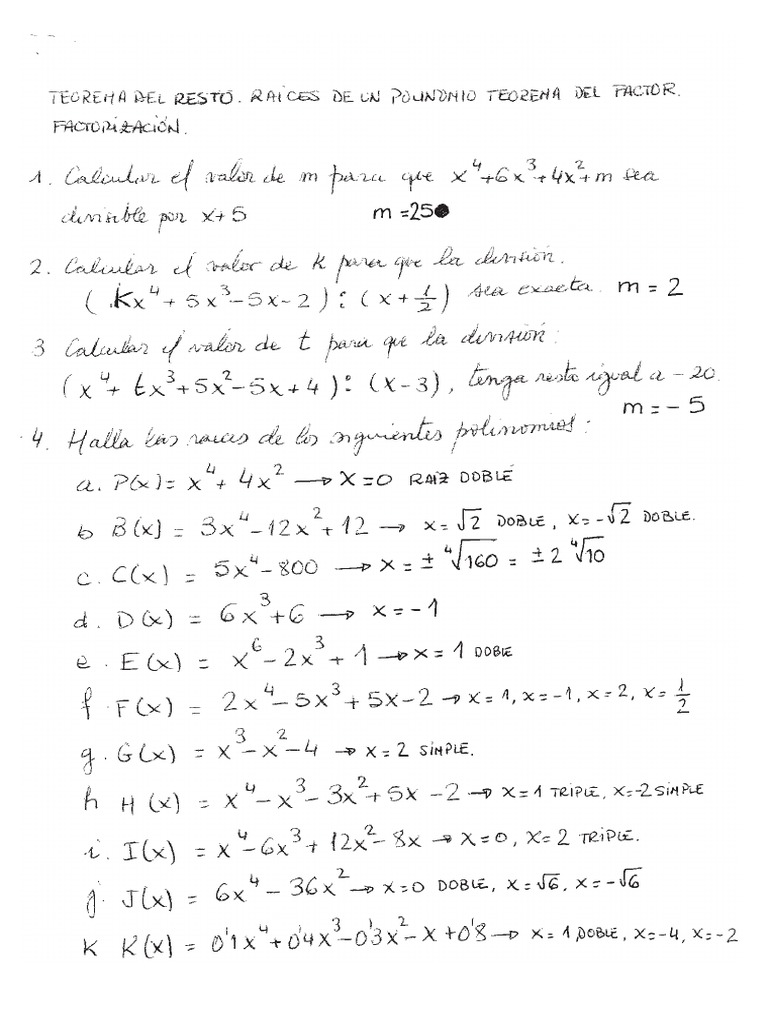 TEOREMA DEL RESTO. RAICES DE UN POLINOMIO TEOREMA DEL FACTOR.
FACTORIZACIÓN.
1. Calcular el valor de m para que x⁴+6x³+4x²+m sea
divisible por x+5 m=25
2. Calcular el valor de k para que la división.
(Kx⁴+5x³-5x-2):(x+1/2) sea exacta. m=2
3 Calcular el valor de t para que la división:
(x⁴+tx³+5x²-5x+4):(x-3), tenga resto igual a -20.
m=-5
4. Halla las raices de los siguientes polinomios:
a. P(x)=x⁴+4x² → x=0 RAIZ DOBLE
b B(x)=3x⁴-12x²+12 → x=√2 DOBLE, x=-√2 DOBLE.
c. C(x)=5x⁴-800 → x=±⁴√160=±2⁴√10
d. D(x)=6x³+6 → x=-1
e. E(x)=x⁶-2x³+1 → x=1 DOBLE
f. F(x)=2x⁴-5x³+5x-2 → x=1, x=-1, x=2, x=1/2
g. G(x)=x³-x²-4 → x=2 SIMPLE.
h H(x)=x⁴-x³-3x²+5x-2 → x=1 TRIPLE, x=-2 SIMPLE
i. I(x)=x⁴-6x³+12x²-8x → x=0, x=2 TRIPLE.
j. J(x)=6x⁴-36x² → x=0 DOBLE, x=√6, x=-√6
K K(x)=0'1x⁴+0'4x³-0'3x²-x+0'8 → x=1 DOBLE, x=-4, x=-2